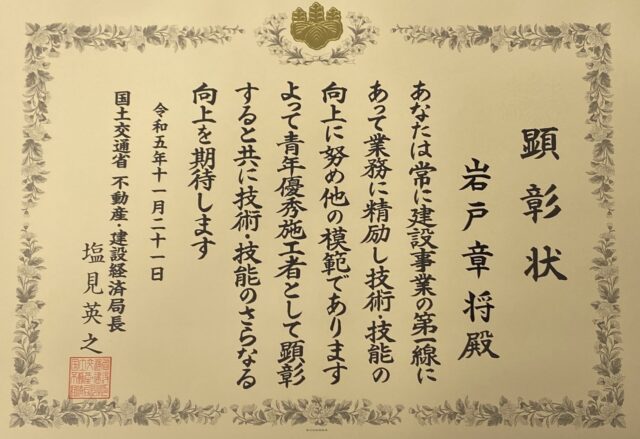 顕彰状
岩戸章将殿
あなたは常に建設事業の第一線に
あって業務に精励し技術・技能の
向上に努め他の模範であります
よって青年優秀施工者として顕彰
すると共に技術・技能のさらなる
向上を期待します
令和五年十一月二十一日
国土交通省 不動産・建設経済局長
塩見英之